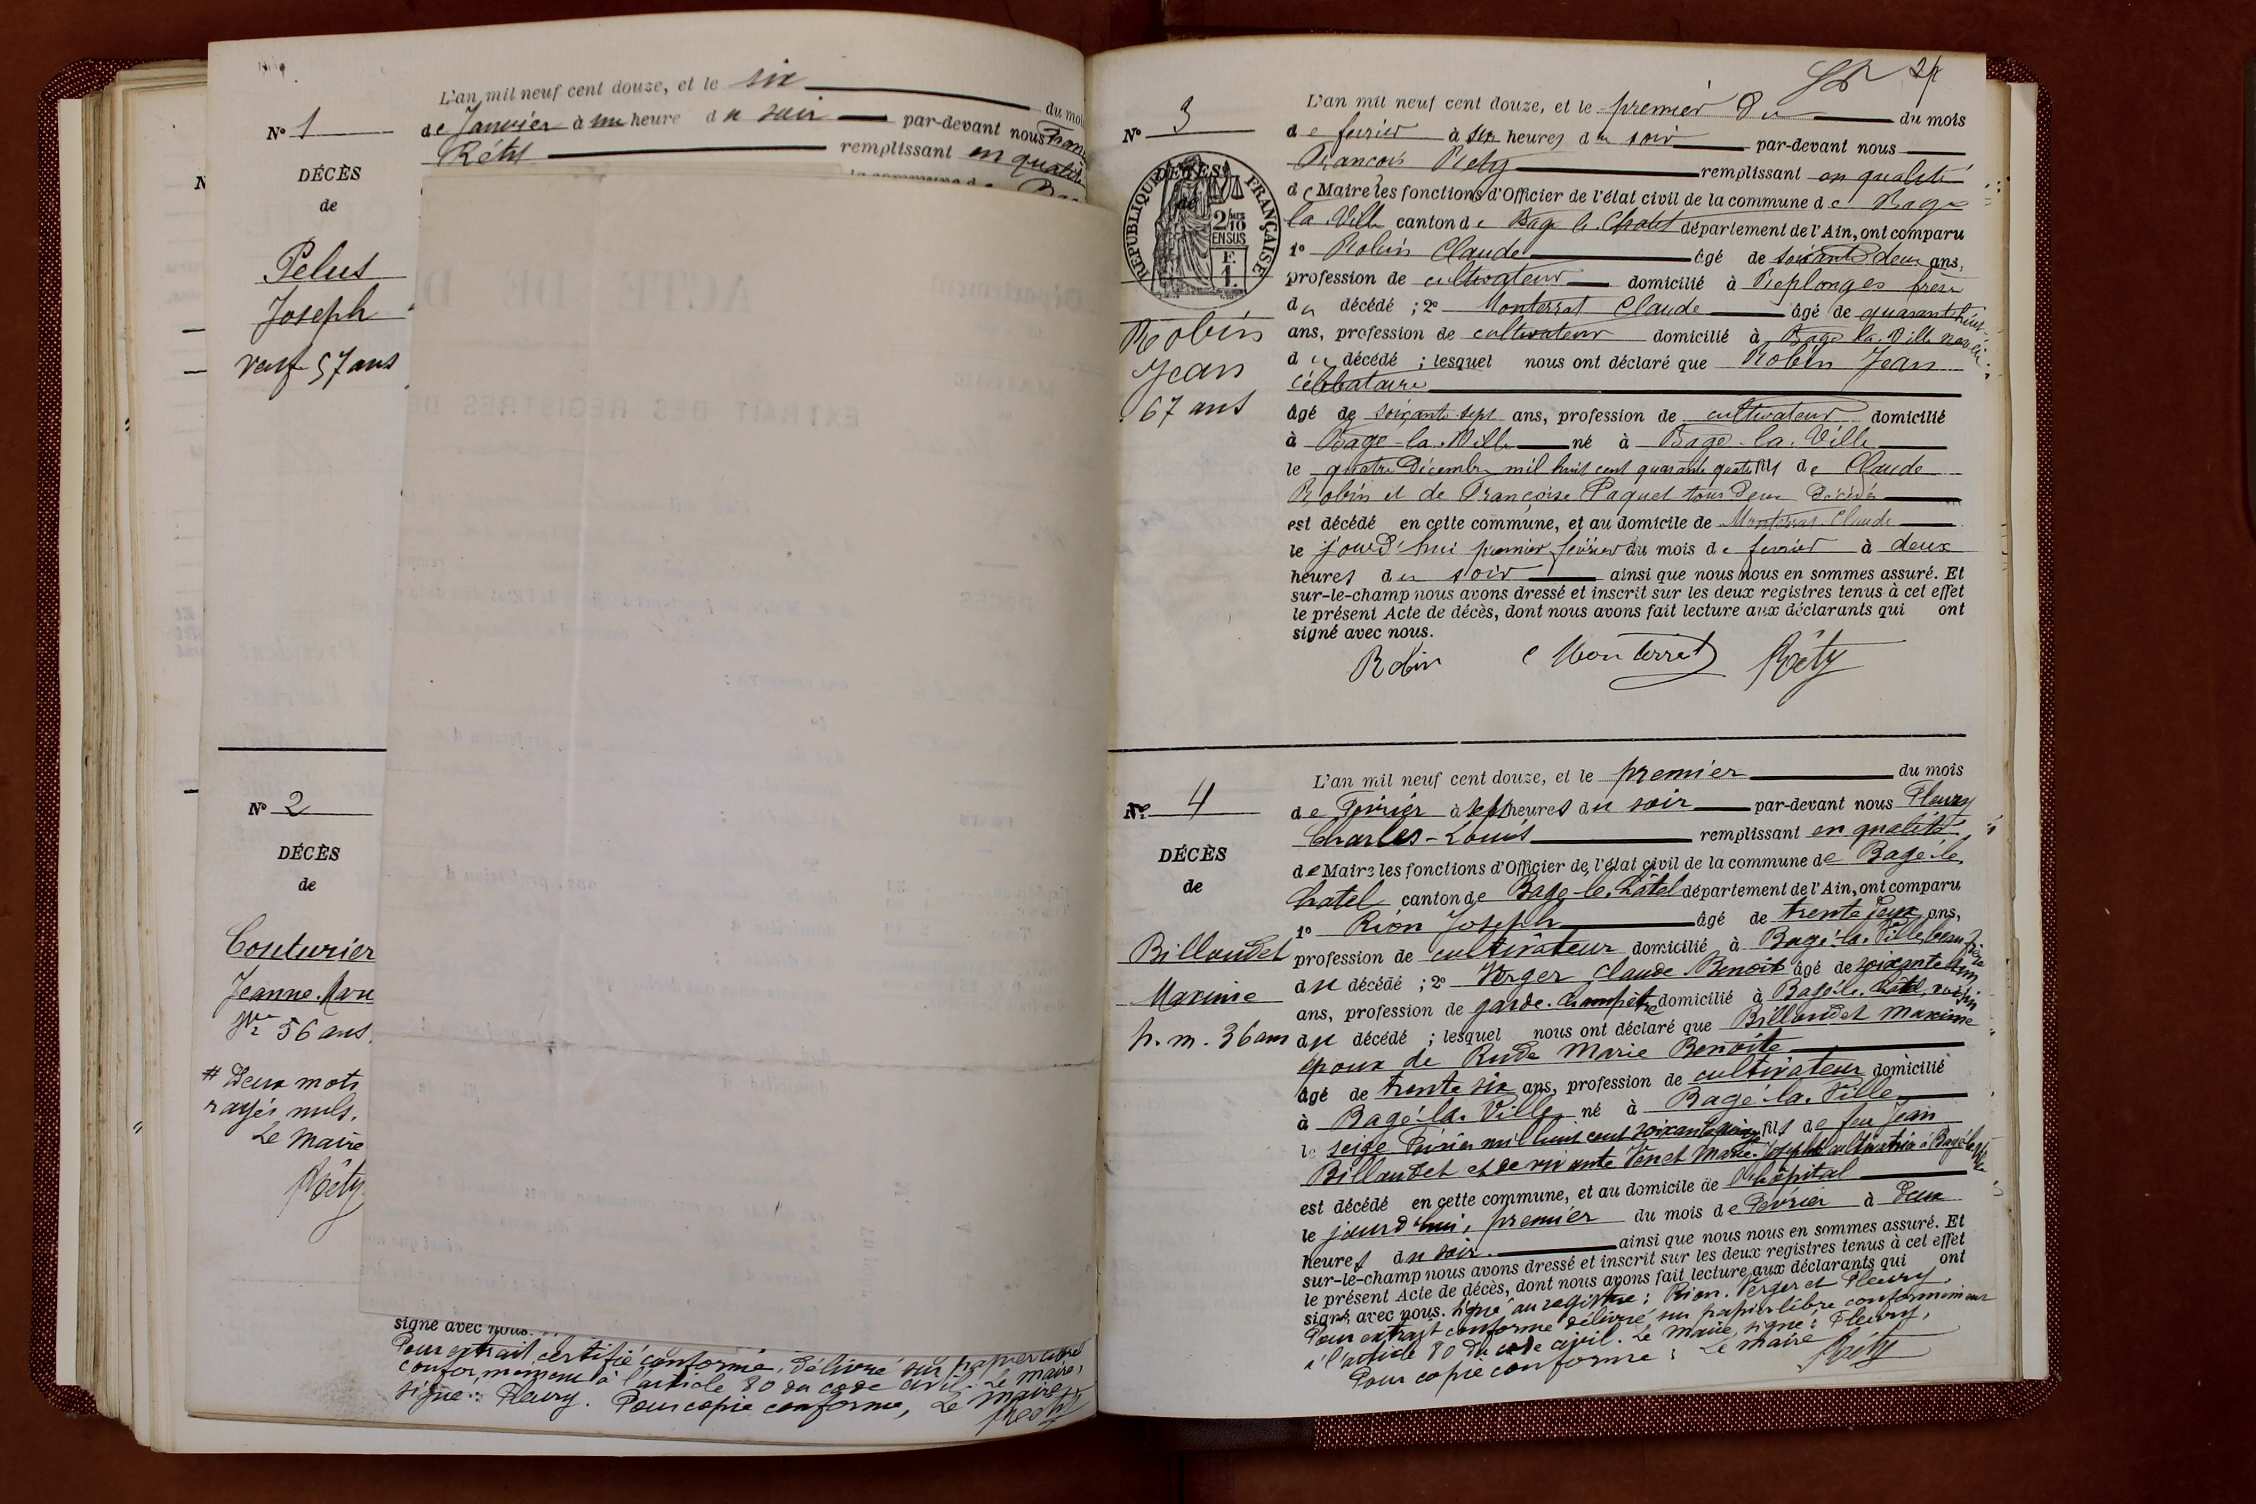 L'an mil neuf cent douze, et le six du mois
de Janvier à une heure du soir par-devant nous
Réty remplissant en qualité
N° 1
DÉCÈS
de
Pelus
Joseph
veuf 57 ans
N° 2
DÉCÈS
de
Couturier
Jeanne Marie
56 ans
# Deux mots
rayés nuls.
Le Maire
Réty
signé avec nous.
Pour extrait certifié conforme, délivré sur papier libre
conformément à l'article 80 du code civil. Le maire,
signé: Fleury. Pour copie conforme, Le Maire
Réty
N° 3
DÉCÈS
de
RÉPUBLIQUE FRANÇAISE
2/10
EN SUS
F.
1.
Robin
Jean
67 ans
L'an mil neuf cent douze, et le premier du du mois
de fevrier à six heures du soir par-devant nous
François Réty remplissant en qualité
de Maire les fonctions d'Officier de l'état civil de la commune de Bagé
la Ville canton de Bagé le Chatel département de l'Ain, ont comparu
1° Robin Claude âgé de soixante deux ans,
profession de cultivateur domicilié à Replonges frère
du décédé ; 2° Monterrat Claude âgé de quarante huit
ans, profession de cultivateur domicilié à Bagé la Ville voisin
du décédé ; lesquel nous ont déclaré que Robin Jean
célibataire
âgé de soixante sept ans, profession de cultivateur domicilié
à Bagé-la-Ville né à Bagé-la-Ville
le quatre Décembre mil huit cent quarante quatre fils de Claude
Robin et de Françoise Paquet tous deux décédés
est décédé en cette commune, et au domicile de Monterrat Claude
le jourd'hui premier février du mois de fevrier à deux
heures du soir ainsi que nous nous en sommes assuré. Et
sur-le-champ nous avons dressé et inscrit sur les deux registres tenus à cet effet
le présent Acte de décès, dont nous avons fait lecture aux déclarants qui ont
signé avec nous.
Robin C Monterrat Réty
N° 4
DÉCÈS
de
Billaudet
Maxime
h. m. 36 ans
L'an mil neuf cent douze, et le premier du mois
de Février à sept heures du soir par-devant nous Fleury
Charles-Louis remplissant en qualité
de Maire les fonctions d'Officier de l'état civil de la commune de Bagé-le-
Chatel canton de Bagé-le-Châtel département de l'Ain, ont comparu
1° Rion Joseph âgé de trente deux ans,
profession de cultivateur domicilié à Bagé-la-Ville, beau frère
du décédé ; 2° Verger Claude Benoit âgé de soixante cinq
ans, profession de garde-champêtre domicilié à Bagé-le-Châtel, voisin
du décédé ; lesquel nous ont déclaré que Billaudet Maxime
époux de Rude Marie Benoite
âgé de trente six ans, profession de cultivateur domicilié
à Bagé-la-Ville né à Bagé-la-Ville
le seize Février mil huit cent soixante quinze fils de feu Jean
Billaudet et de vivante Venet Marie-Josephte cultivatrice à Bagé-la-Ville
est décédé en cette commune, et au domicile de l'hôpital
le jourd'hui, premier du mois de Février à deux
heures du soir. ainsi que nous nous en sommes assuré. Et
sur-le-champ nous avons dressé et inscrit sur les deux registres tenus à cet effet
le présent Acte de décès, dont nous avons fait lecture aux déclarants qui ont
signé avec nous. Signé au registre: Rion. Verger et Fleury.
Pour extrait conforme délivré sur papier libre conformément
à l'article 80 du code civil. Le Maire, signé: Fleury,
Pour copie conforme: Le Maire Réty